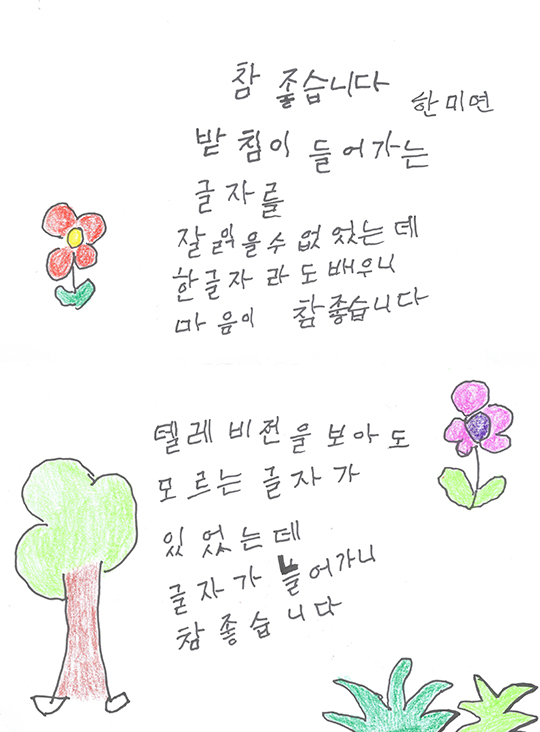 참 좋습니다
한미연
받침이 들어가는
글자를
잘 읽을수 없었는데
한글자 라도 배우니
마음이 참좋습니다
텔레비전을 보아도
모르는 글자가
있었는데
글자가 늘어가니
참좋습니다